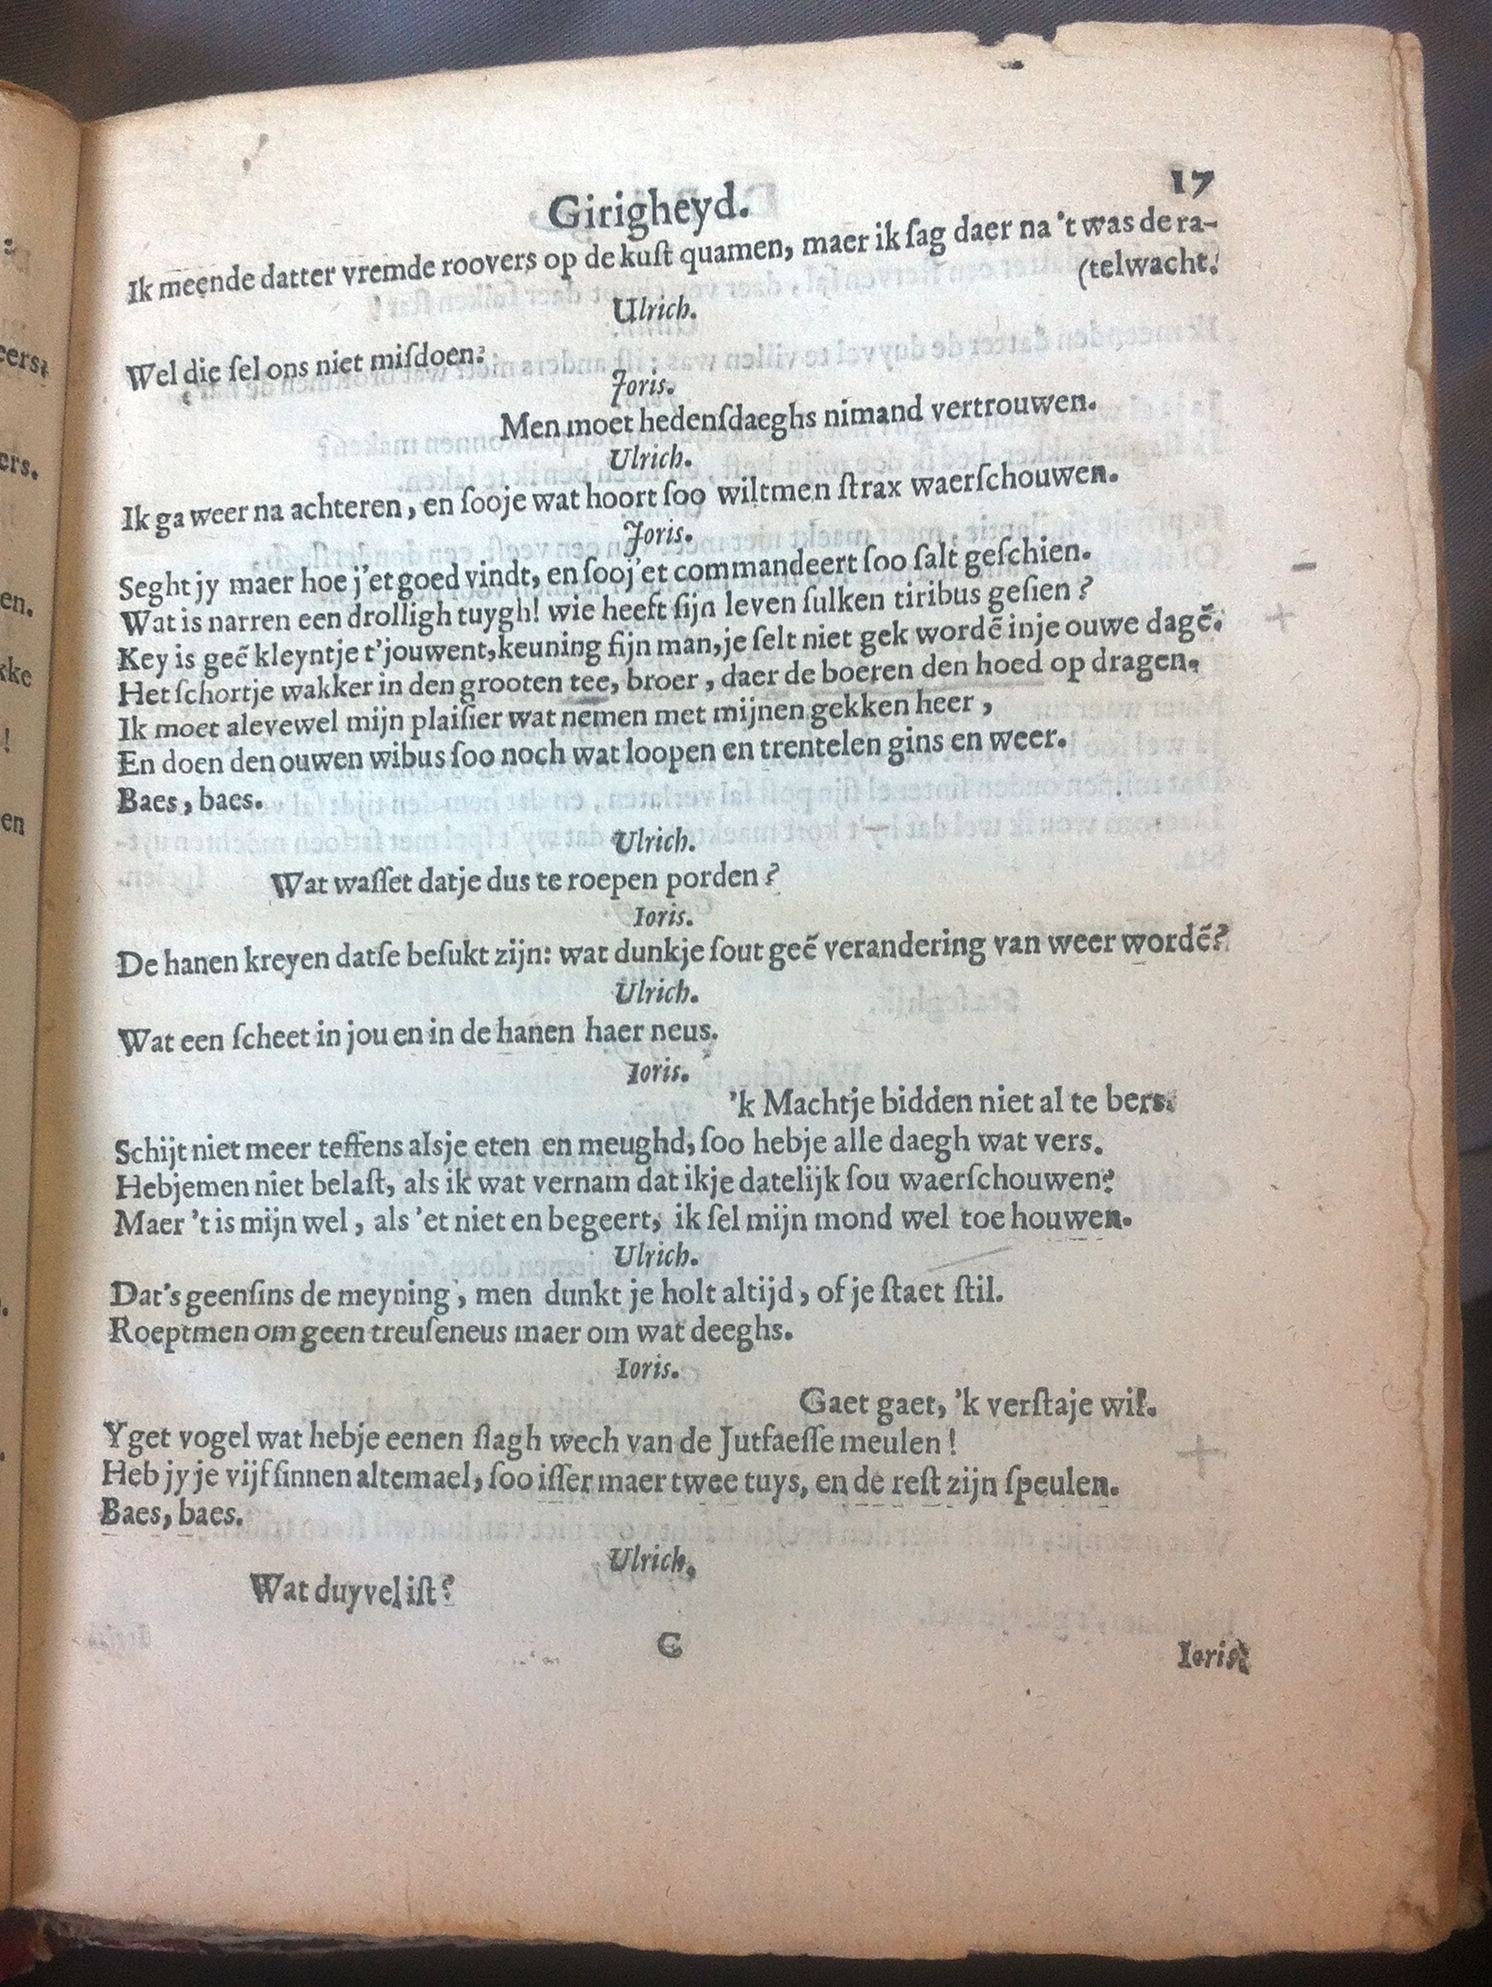 Girigheyd. 17
Ik meende datter vremde roovers op de kuſt quamen, maer ik ſag daer na 't was de ra-
(telwacht.
Ulrich.
Wel die ſel ons niet miſdoen.
Joris.
Men moet hedenſdaeghs nimand vertrouwen.
Ulrich.
Ik ga weer na achteren, en ſooje wat hoort ſoo wiltmen ſtrax waerſchouwen.
Joris.
Seght jy maer hoe j'et goed vindt, en ſooj'et commandeert ſoo ſalt geſchien.
Wat is narren een drolligh tuygh! wie heeft ſijn leven ſulken tiribus geſien?
Key is geẽ kleyntje t'jouwent, keuning ſijn man, je ſelt niet gek wordẽ in je ouwe dagẽ.
Het ſchortje wakker in den grooten tee, broer, daer de boeren den hoed op dragen.
Ik moet alevewel mijn plaiſier wat nemen met mijnen gekken heer,
En doen den ouwen wibus ſoo noch wat loopen en trentelen gins en weer.
Baes, baes.
Ulrich.
Wat waſſet datje dus te roepen porden?
Ioris.
De hanen kreyen datſe beſukt zijn: wat dunkje ſout geẽ verandering van weer wordẽ?
Ulrich.
Wat een ſcheet in jou en in de hanen haer neus.
Ioris.
'k Machtje bidden niet al te bers.
Schijt niet meer teffens alsje eten en meughd, ſoo hebje alle daegh wat vers.
Hebjemen niet belaſt, als ik wat vernam dat ikje datelijk ſou waerſchouwen?
Maer 't is mijn wel, als 'et niet en begeert, ik ſel mijn mond wel toe houwen.
Ulrich.
Dat's geenſins de meyning, men dunkt je holt altijd, of je ſtaet ſtil.
Roeptmen om geen treuſeneus maer om wat deeghs.
Ioris.
Gaet gaet, 'k verſtaje wil.
Yget vogel wat hebje eenen ſlagh wech van de Jutfaeſſe meulen!
Heb jy je vijf ſinnen altemael, ſoo iſſer maer twee tuys, en de reſt zijn ſpeulen.
Baes, baes.
Ulrich.
Wat duyvel iſt?
C
Ioris.